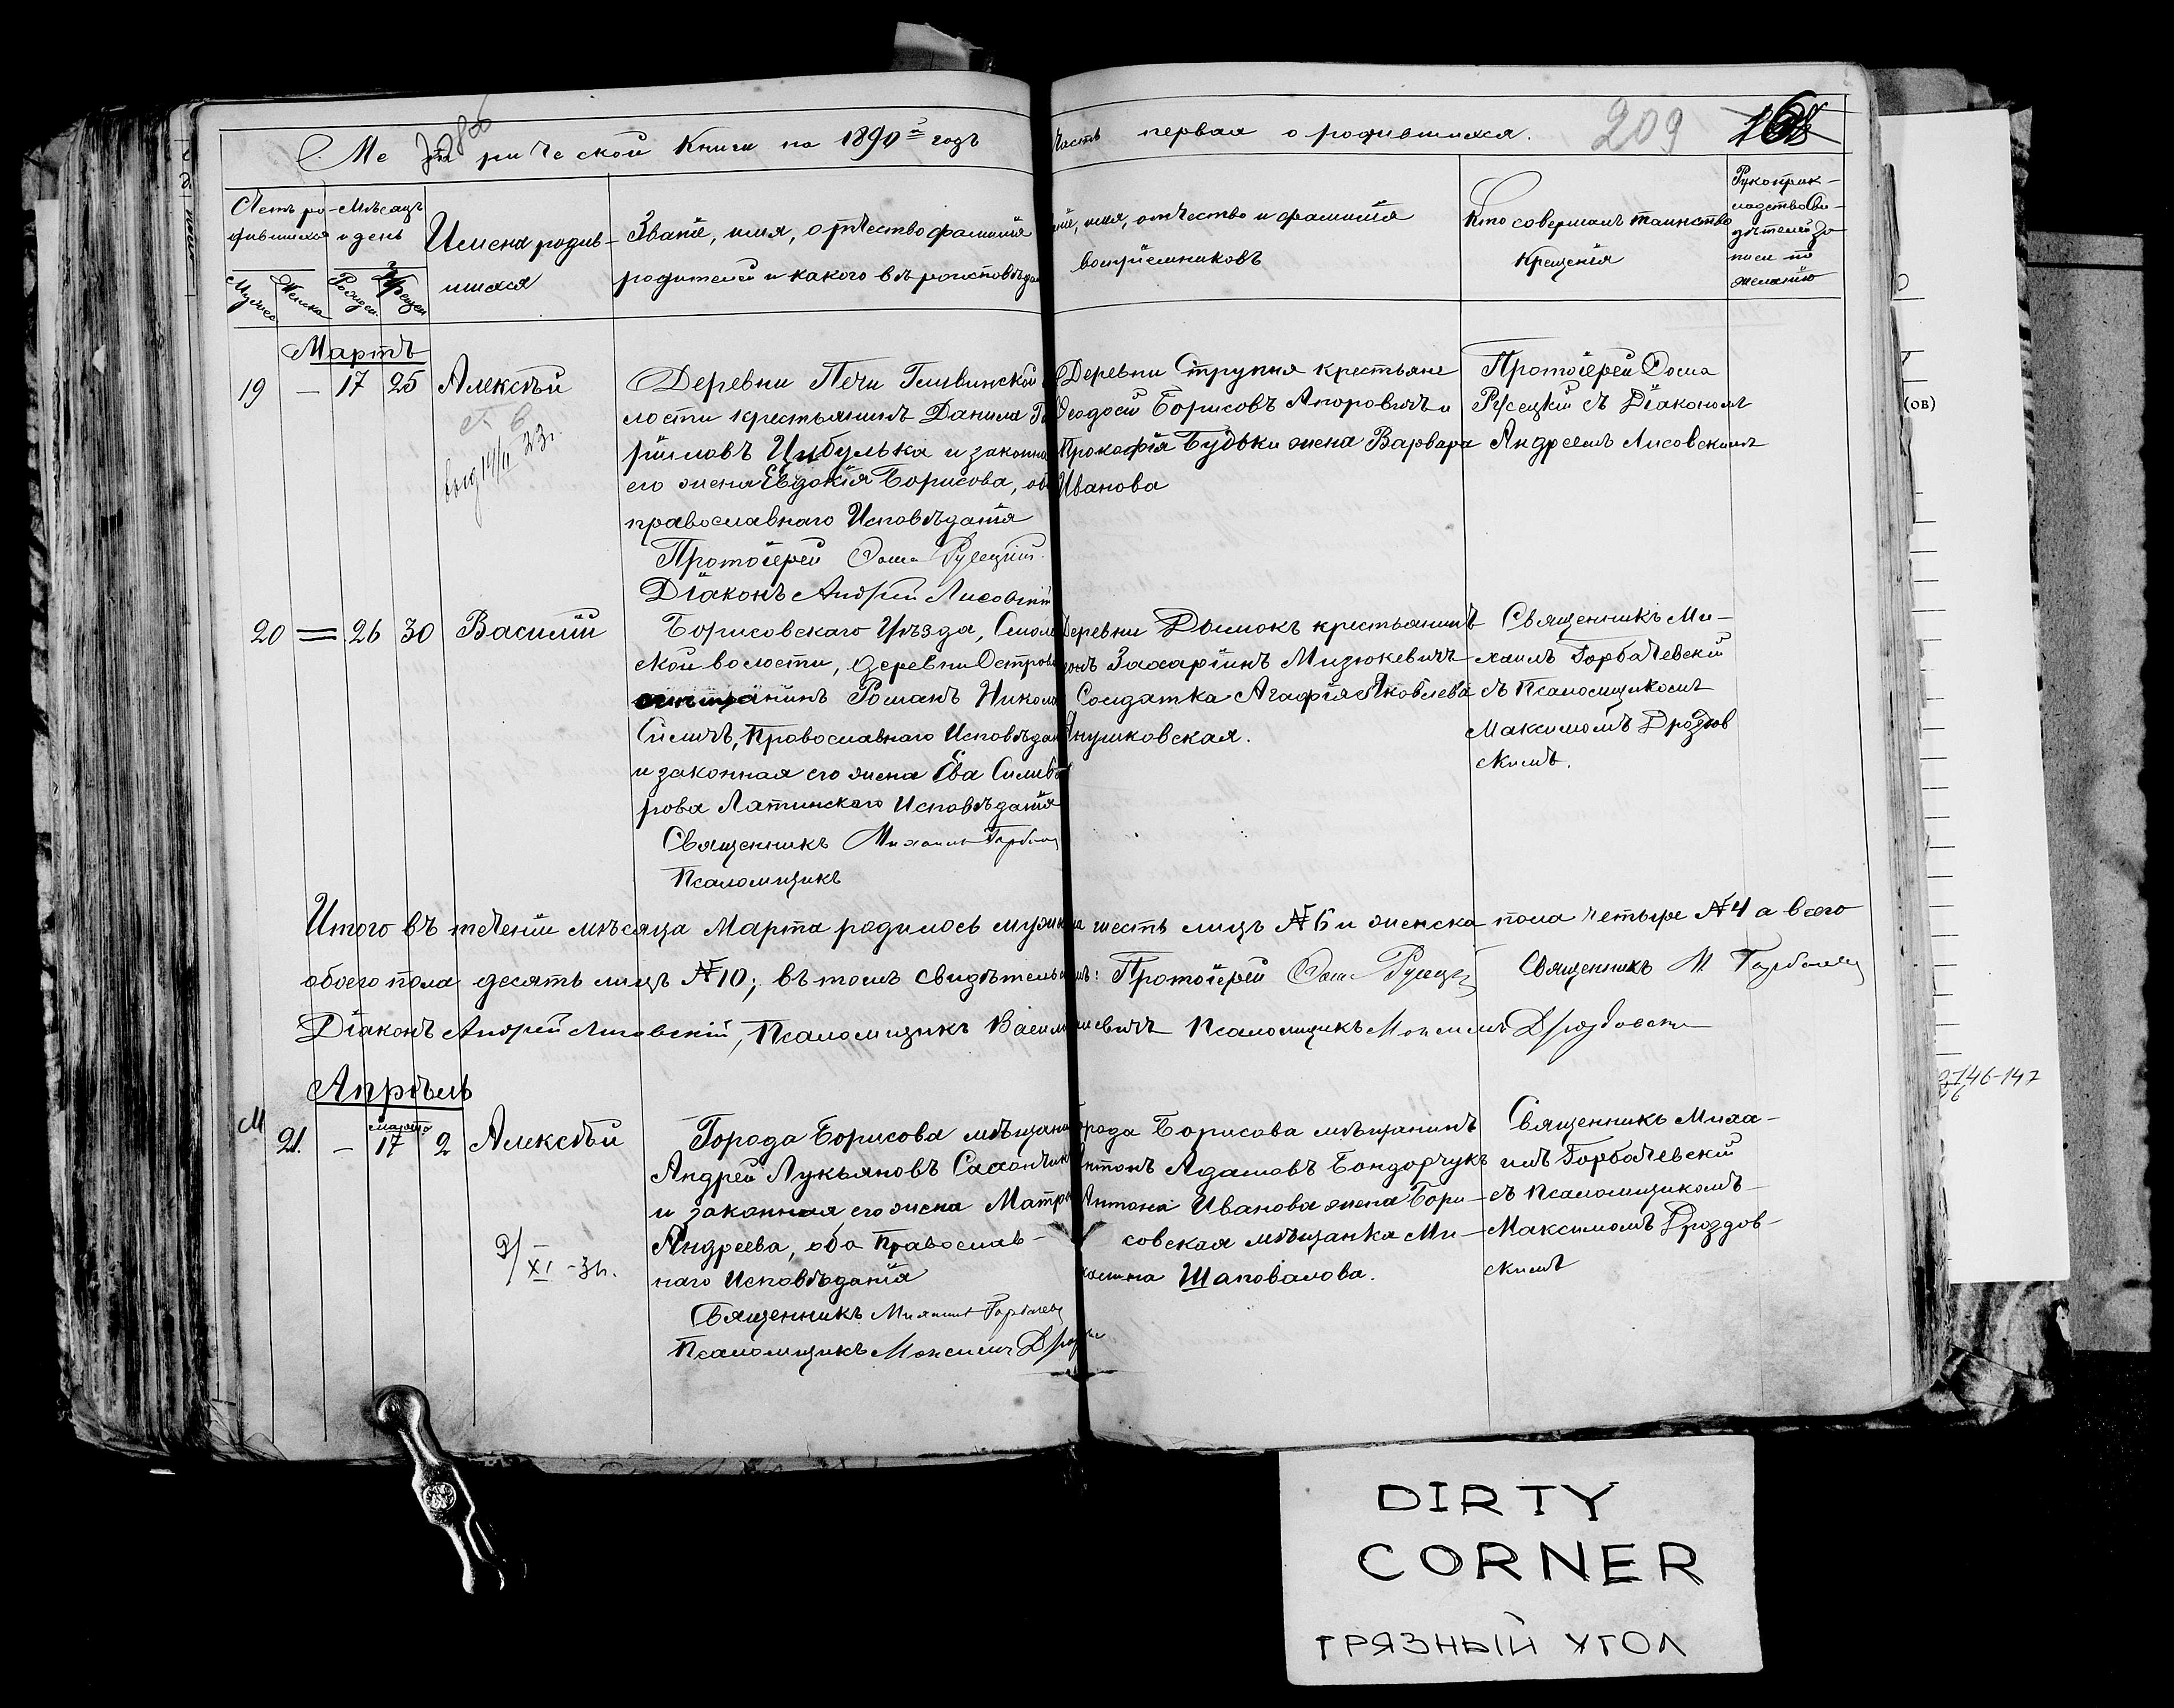 Метрической Книги на 1890й годъ
Часть первая о родившихся.
209
Счетъ ро-
дившихся
Мѣсяцъ
и день
Мужеска
Женска
Рожден.
Крещен
Имена родив-
шихся
Званіе, имя, отчество фамилія
родителей и какого вѣроисповѣдан
имя, отчество и фамилія
воспріемниковъ
Кто совершалъ таинство
Крещенія
Рукоприк-
ладство сви-
дѣтелей за-
писи по
желанію
Мартъ
19 — 17 25 Алексѣй
Деревни Печи Гливинской
лости крестьянинъ Данила Га
ріиловъ Цибулька и законна
его жена Евдокія Борисова, об
православнаго Исповѣданія
Протоіерей Ѳома Русецкій
Діаконъ Андрей Лисовскій
Деревни Струпня крестьяне
Ѳеодосій Борисовъ Апоровичъ и
Прокофія Будьки жена Варвара
Иванова
Протоіерей Ѳома
Русецкій съ Діакономъ
Андреемъ Лисовскимъ
20 = 26 30 Василій
Борисовскаго Уѣзда, Смоле
ской волости, деревни Острова
Романъ Никола
Силичъ, Православнаго Исповѣдан
и законная его жена Ева Сильве
рова Латинскаго Исповѣданія
Священникъ Михаилъ Горбаче
Псаломщикъ
Деревни Домокъ крестьянинъ
Захаріинъ Мизюкевичъ
Солдатка Агафія Яковлева
Янушковская.
Священникъ Ми-
хаилъ Горбачевскій
съ Псаломщикомъ
Максимомъ Дроздов
скимъ.
Итого въ теченіи мѣсяца Марта родилось мужска шесть лицъ №6 и женска пола четыре №4 а всего
обоего пола десять лицъ №10; въ томъ свидѣтельствуемъ: Протоіерей Ѳома Русецкій Священникъ М Горбачев
Діаконъ Андрей Лисовскій, Псаломщикъ Псаломщикъ Максимъ Дроздовскій
Апрѣль
М
марта
21. — 17 2 Алексѣй
Города Борисова мѣщанин
Андрей Лукьяновъ Сахончик
и законная его жена Матро
Андреева, оба Православ-
наго Исповѣданія
Священникъ Михаилъ Горбачев
Псаломщикъ Максимъ Дрозд
XI
рода Борисова мѣщанинъ
Антонъ Адамовъ Бондорчукъ
Антона Иванова жена Бори-
совская мѣщанка Ми-
халина Шаповалова.
Священникъ Миха-
илъ Горбачевскій
съ Псаломщикомъ
Максимомъ Дроздов-
скимъ
(ов)
146-147
DIRTY
CORNER
ГРЯЗНЫЙ УГОЛ